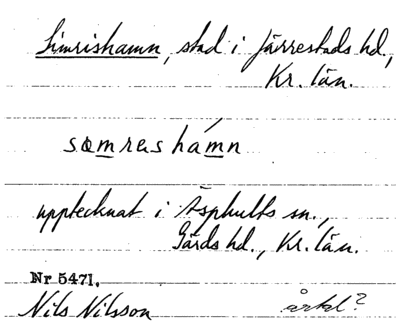 Simrishamn, stad i Järrestads hd.,
Kr. län.
sømrɛshámn
upptecknat i Äsphults sn.,
Gärds hd., Kr. län.
Nr 5471.
Nils Nilsson